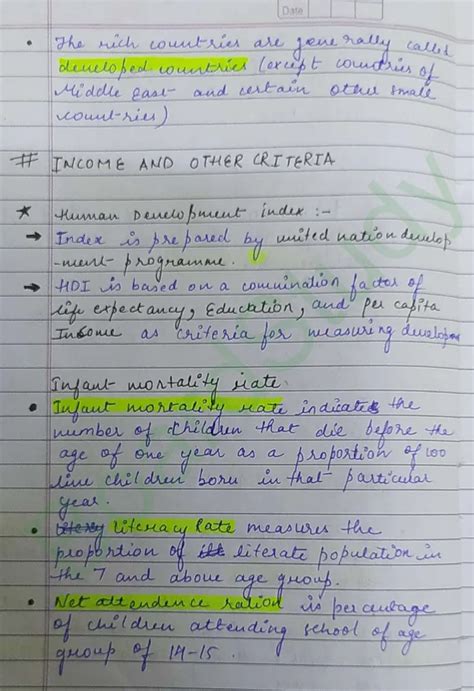 Date
• The rich countries are generally called
developed countries (except countries of
Middle east and certain other small
countries)
# INCOME AND OTHER CRITERIA
★ Human Development index :-
→ Index is prepared by united nation develop
-ment programme.
→ HDI is based on a comnination factor of
life expectancy, Education, and per capita
Income as criteria for measuring developm
Infant mortality rate
• Infant mortality rate indicates the
number of children that die before the
age of one year as a proportion of 100
live children born in that particular
year.
• literacy Rate measures the
proportion of literate population in
the 7 and above age group.
• Net attendence ration is percentage
of children attending school of age
group of 14-15.
study